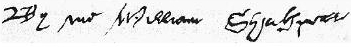 By me William Shakspear